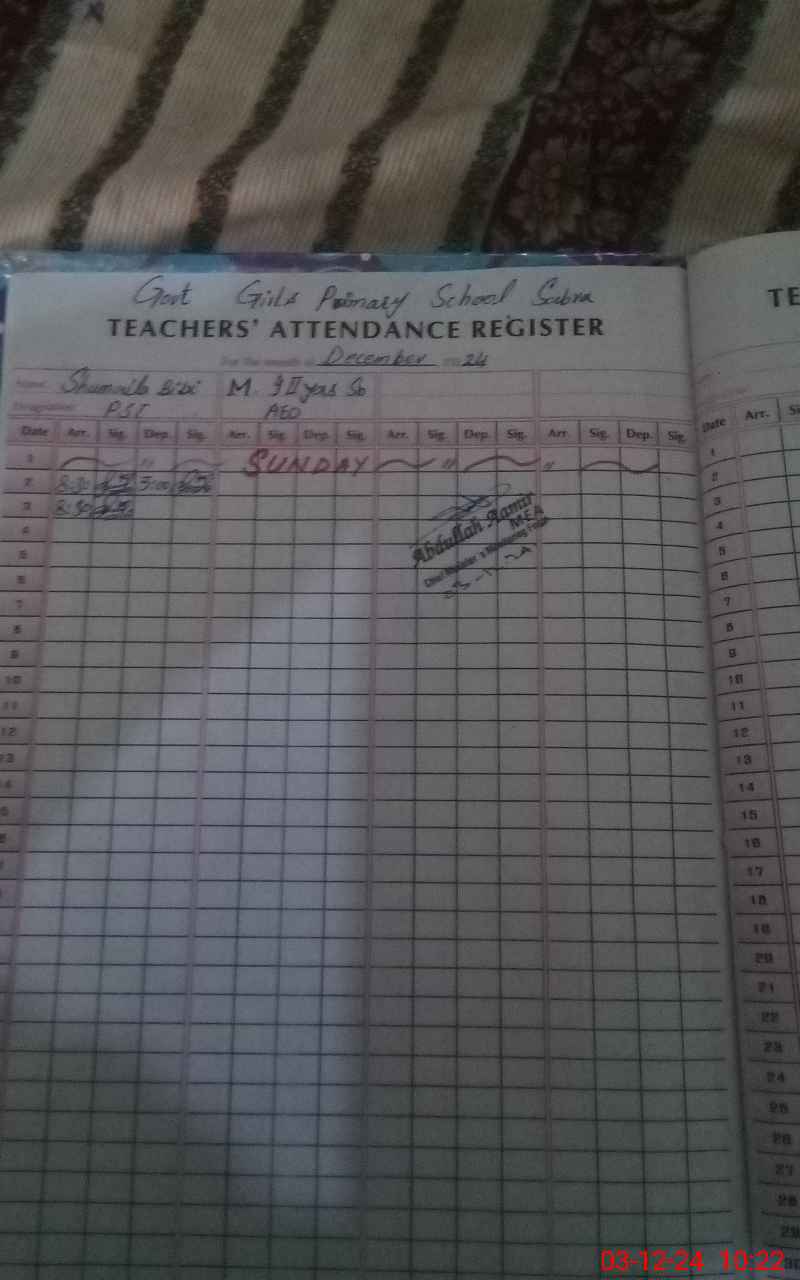 Govt Girls Primary School Sabra
TEACHERS' ATTENDANCE REGISTER TE
For the month of December 24
Name Shumaila Bibi M. Sb
Designation PST AEO
Date Arr. Sig. Dep. Sig. Arr. Sig. Dep. Sig. Arr. Sig. Dep. Sig. Arr. Sig. Dep. Sig. Date Arr.
1 " SUNDAY " " 1
2 8:30 3:00 2
3 8:30 3
4 4
5 5
6 6
7 7
8 8
9 9
10 10
11 11
12 12
13 13
14 14
15 15
16 16
17 17
18
19
20
21
22
23
24
25
26
27
28
29
30
Abdullah Aamir
MEA
Chief Minister's Monitoring Force
03-12-24 10:22